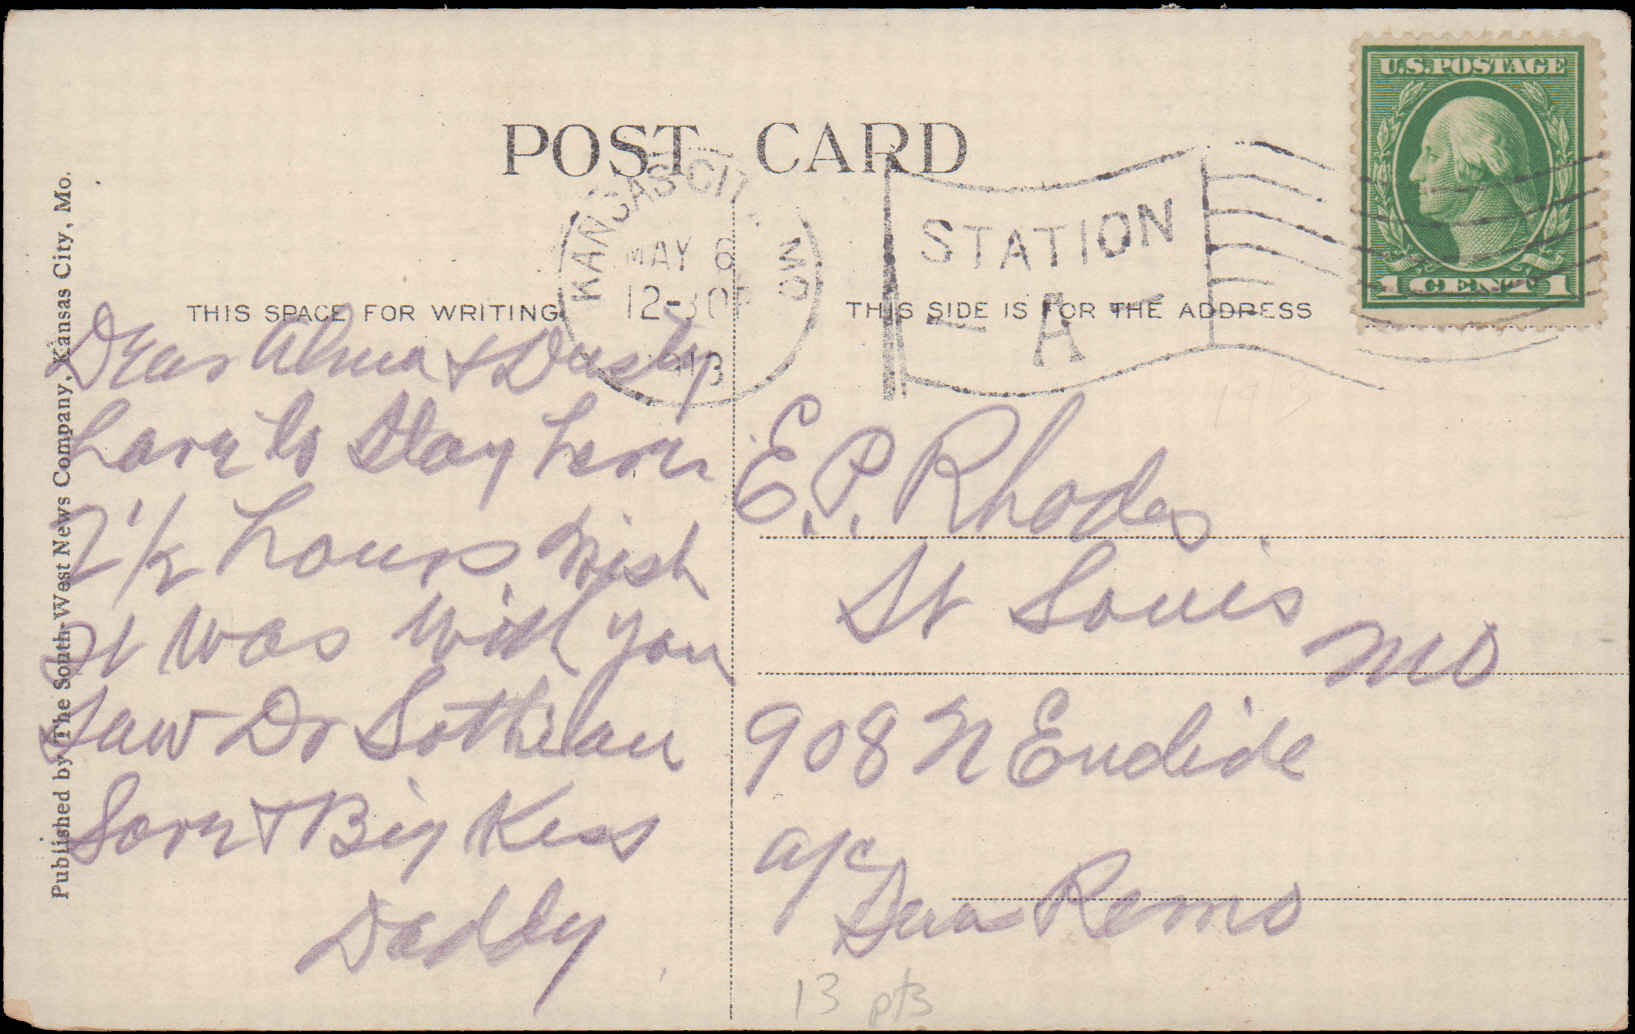 U.S. POSTAGE
1 CENT 1
POST CARD
KANSAS CITY, MO.
MAY 6
12-30P
13
STATION
- A -
THIS SPACE FOR WRITING
THIS SIDE IS FOR THE ADDRESS
Published by The South-West News Company, Kansas City, Mo.
Dear Alma & Dusty
have to stay here
7 1/2 hours. Wish
it was with you
Saw Dr
Love & Big Kiss
Daddy
E. P. Rhodes.
St Louis
MO
908 N Euclide
a/c
Remo
13 pts